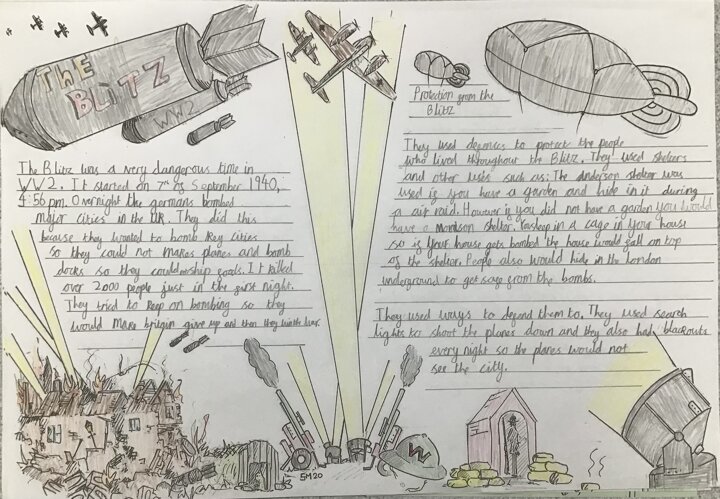 THE
BLITZ
WW2
The Blitz was a very dangerous time in
WW2. It started on 7th of September 1940,
4:56pm. Overnight the germans bombed
major cities in the UK. They did this
because they wanted to bomb key cities
so they could not makes planes and bomb
docks so they could not ship goods. It killed
over 2000 people just in the first night.
They tried to keep on bombing so they
would make britain give up and then they win the war.
Protection from the
Blitz
They used defences to protect the people
who lived throughout the Blitz. They used shelters
and other uses such as: The anderson shelter was
used if you have a garden and hide in it during
a air raid. However if you did not have a garden you would
have a morrison shelter. You sleep in a cage in your house
so if your house gets bombed the house would fall on top
of the shelter. People also would hide in the London
underground to get safe from the bombs.
They used ways to defend them to. They used search
lights to shoot the planes down and they also had blackouts
every night so the planes would not
see the city.
W
EM20